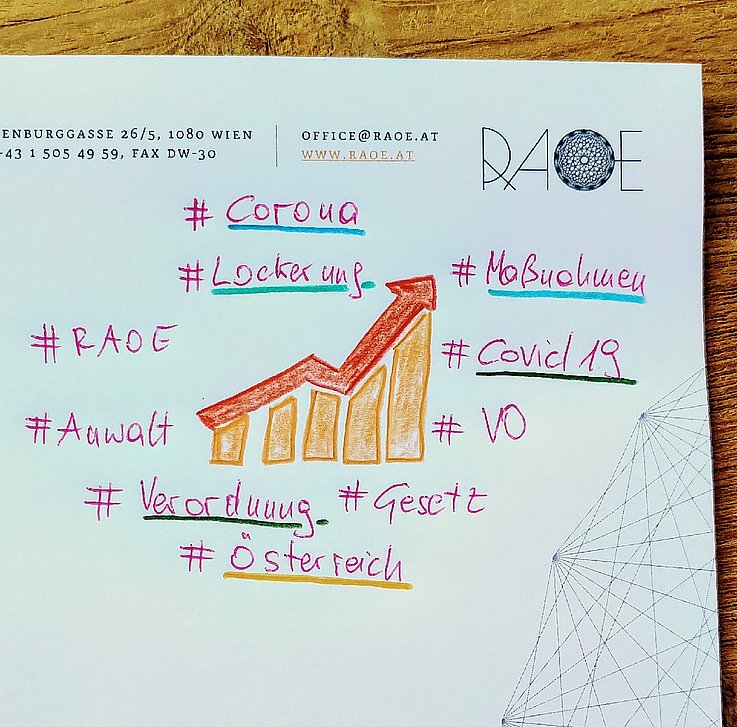 ENBURGGASSE 26/5, 1080 WIEN
-43 1 505 49 59, FAX DW-30
OFFICE@RAOE.AT
WWW.RAOE.AT
RAOE
# Corona
# Lockerung
# Maßnahmen
# RAOE
# Covid19
# Anwalt
# VO
# Verordnung # Gesetz
# Österreich